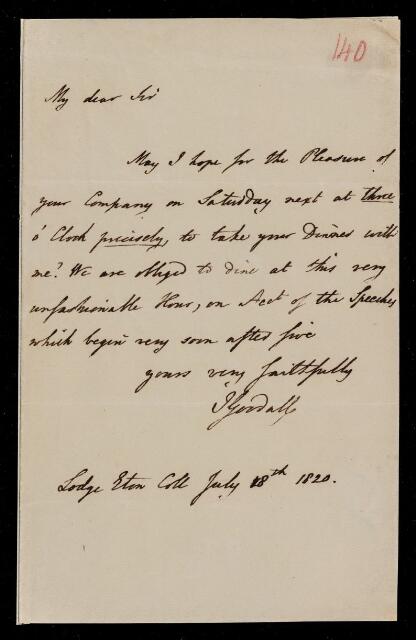 140
My dear Sir
May I hope for the Pleasure of
your Company on Saturday next at three
o' Clock precisely, to take your Dinner with
me? We are obliged to dine at this very
unfashionable Hour, on Acct of the Speeches
which begin very soon after five
yours very faithfully
J Goodall
Lodge Eton Coll July 18th 1820.